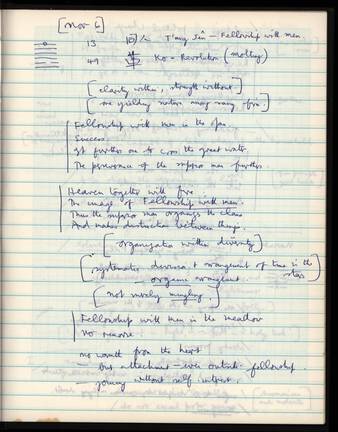 [Nov 6]
13 T'ung Jên - Fellowship with men
49 Ko - Revolution (molting)
[clarity within, strength without]
[one yielding nature among many firm]
Fellowship with men in the open
Success
It furthers one to cross the great water.
The perseverance of the superior man furthers
Heaven together with fire
The image of Fellowship with men.
Thus the superior man organizes the clans
And makes distinctions between things.
[organization within diversity]
[systematic division & arrangement of time in the stars
organic arrangement
[not merely mingling.]
Fellowship with men in the meadow
no remorse
no warmth from the heart
- but attachment - even outside fellowship.
- joining without self interest.